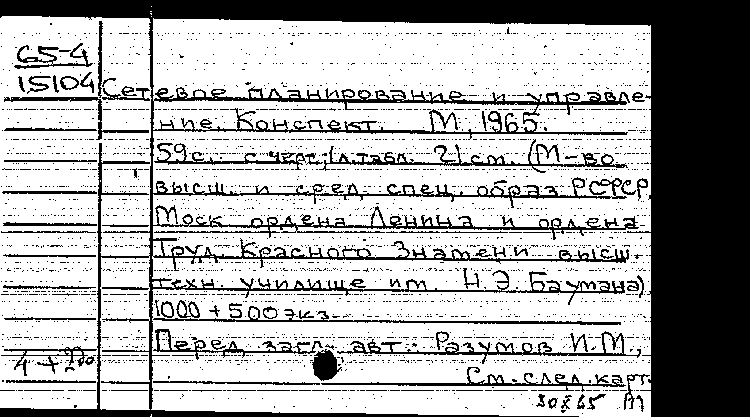 65-4
15104
Сетевое планирование и управле-
ние. Конспект. М, 1965.
59с. с черт.; 1 л. табл. 21 см. (М-во
высш. и сред. спец. образ РСФСР.
Моск ордена Ленина и ордена
Труд. Красного Знамени высш.
техн. училище им. Н.Э. Баумана)
1000 + 500 экз.
Перед загл. авт.: Разумов И.М.,
См. след. карт.
4 + 200